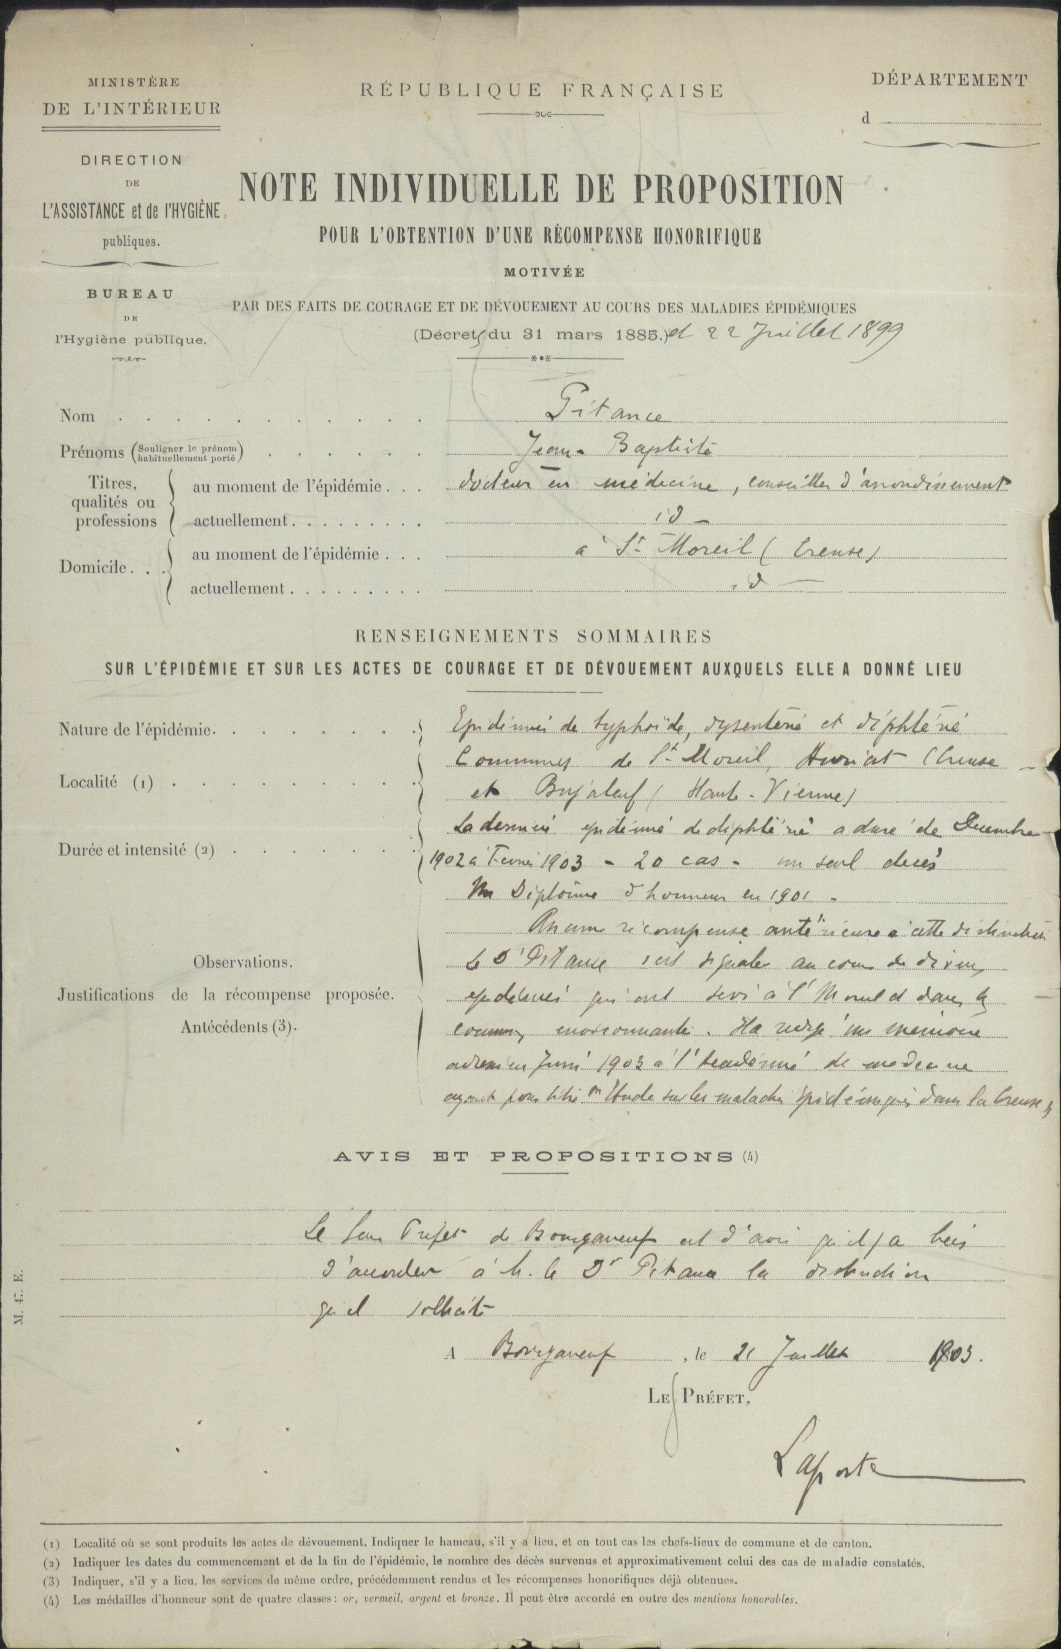 MINISTÈRE
DE L'INTÉRIEUR
DIRECTION
DE
L'ASSISTANCE et de l'HYGIÈNE
publiques.
BUREAU
DE
l'Hygiène publique.
RÉPUBLIQUE FRANÇAISE
DÉPARTEMENT
d
NOTE INDIVIDUELLE DE PROPOSITION
POUR L'OBTENTION D'UNE RÉCOMPENSE HONORIFIQUE
MOTIVÉE
PAR DES FAITS DE COURAGE ET DE DÉVOUEMENT AU COURS DES MALADIES ÉPIDÉMIQUES
(Décrets du 31 mars 1885.) et 22 Juillet 1899
Nom Pitance
Prénoms (Souligner le prénom habituellement porté) Jean-Baptiste
Titres, qualités ou professions
au moment de l'épidémie docteur en médecine, conseiller d'arrondissement
actuellement id
Domicile
au moment de l'épidémie à St Moreil (Creuse)
actuellement id
RENSEIGNEMENTS SOMMAIRES
SUR L'ÉPIDÉMIE ET SUR LES ACTES DE COURAGE ET DE DÉVOUEMENT AUXQUELS ELLE A DONNÉ LIEU
Nature de l'épidémie. Epidémies de typhoïde, dysenterie et diphtérie
Localité (1) Communes de St Moreil, (Creuse
et Bujaleuf (Haute-Vienne)
Durée et intensité (2) La dernière épidémie de diphtérie a duré de Decembre
1902 à Fevrier 1903 - 20 cas - un seul décès
Observations.
Justifications de la récompense proposée.
Antécédents (3).
Un Diplôme d'honneur en 1901 -
Aucune récompense antérieure à cette distinction
Le Dr Pitance s'est signalé au cours de diverses
épidémies qui ont sevi à St Moreil et dans les
communes environnantes. Il a redigé un mémoire
adressé en 1903 à l'Académie de medecine
ayant pour titre "Etude sur les maladies épidémiques dans la Creuse"
AVIS ET PROPOSITIONS (4)
Le Sous Prefet de Bourganeuf est d'avis qu'il y a lieu
d'accorder à M. le Dr Pitance la distinction
qu'il sollicite
A Bourganeuf, le 21 Juillet 1903.
LE PRÉFET,
Laporte
M. C. E.
(1) Localité où se sont produits les actes de dévouement. Indiquer le hameau, s'il y a lieu, et en tout cas les chefs-lieux de commune et de canton.
(2) Indiquer les dates du commencement et de la fin de l'épidémie, le nombre des décès survenus et approximativement celui des cas de maladie constatés.
(3) Indiquer, s'il y a lieu, les services de même ordre, précédemment rendus et les récompenses honorifiques déjà obtenues.
(4) Les médailles d'honneur sont de quatre classes : or, vermeil, argent et bronze. Il peut être accordé en outre des mentions honorables.